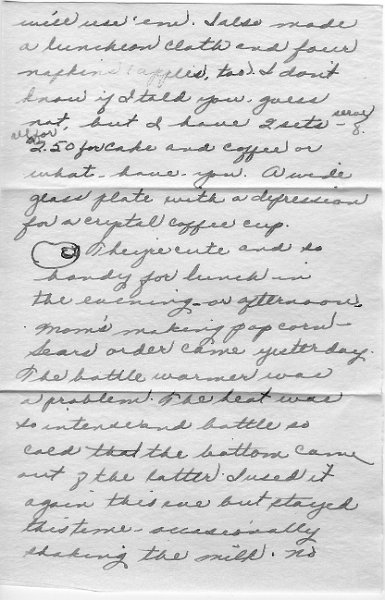 will use 'em. I also made
a luncheon cloth and four
napkins (applis, too). I don't
know if I told you, guess
not, but I have 2 sets - serve 8.
all for
2.50 for cake and coffee or
what-have-you. A wide
glass plate with a depression
for a crystal coffee cup.
They're cute and so
handy for lunch in
the evening - or afternoon.
Mom's making popcorn -
Sears order came yesterday.
The bottle warmer was
a problem. The heat was
so intense and bottle so
cold that the bottom came
out of the latter. I used it
again this eve but stayed
this time - occasionally
shaking the milk. no